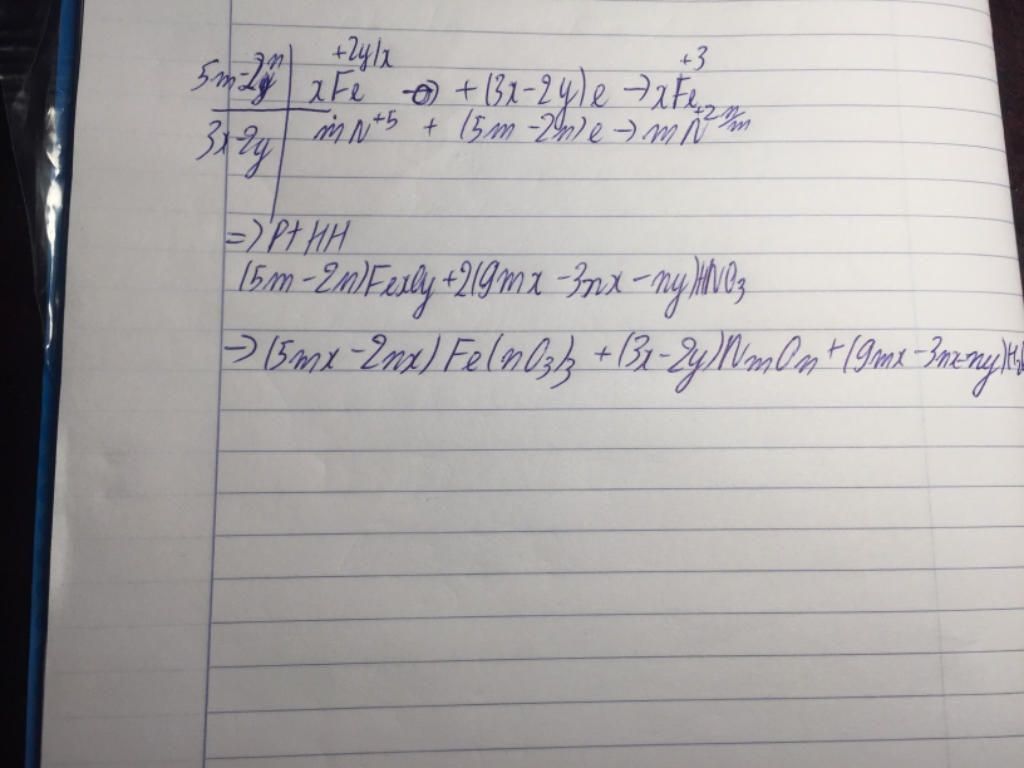 5m-2n | xFe +2y/x → + (3x-2y)e → xFe +3
3x-2y | mN+5 + (5m-2n)e → mN+2n/m
=> PTHH
(5m-2n)FexOy+2(9mx-3nx-ny)HNO3
→ (5mx-2nx) Fe(nO3)3 + (3x-2y)NmOn + (9mx-3nx-ny)H2O